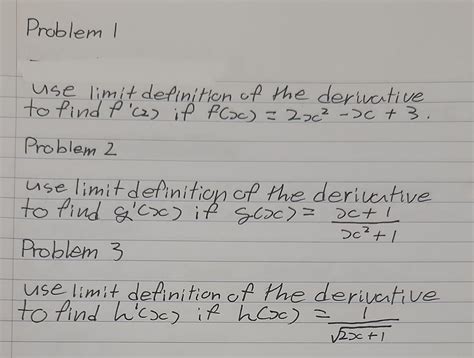 Problem 1
use limit definition of the derivative
to find f'(2) if f(x) = 2x² - x + 3.
Problem 2
use limit definition of the derivative
to find g'(x) if g(x) = x+1 / x²+1
Problem 3
use limit definition of the derivative
to find h'(x) if h(x) = 1 / √2x+1